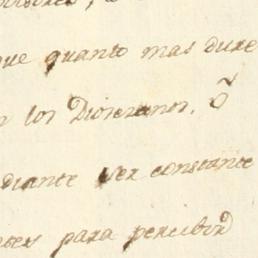 que quanto mas dure
los Diocesanos, õ
diante ser constante
para percibir